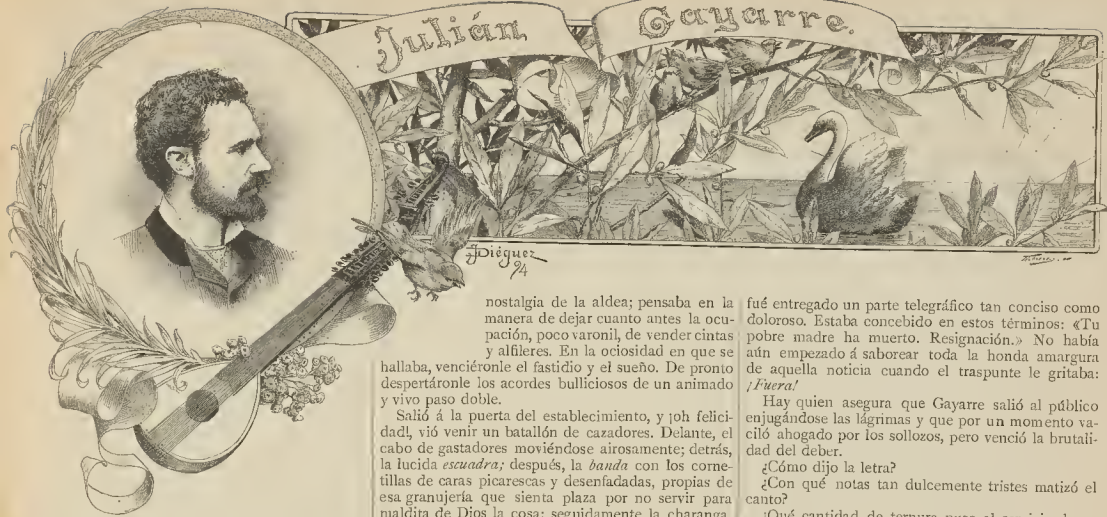 Julián Gayarre.
JDiéguez
94
nostalgia de la aldea; pensaba en la
manera de dejar cuanto antes la ocu-
pación, poco varonil, de vender cintas
y alfileres. En la ociosidad en que se
hallaba, venciéronle el fastidio y el sueño. De pronto
despertáronle los acordes bulliciosos de un animado
y vivo paso doble.
Salió á la puerta del establecimiento, y ¡oh felici-
dad!, vió venir un batallón de cazadores. Delante, el
cabo de gastadores moviéndose airosamente; detrás,
la lucida escuadra; después, la banda con los corne-
tillas de caras picarescas y desenfadadas, propias de
esa granujería que sienta plaza por no servir para
maldita de Dios la cosa; seguidamente la charanga,
fué entregado un parte telegráfico tan conciso como
doloroso. Estaba concebido en estos términos: «Tu
pobre madre ha muerto. Resignación.» No había
aún empezado á saborear toda la honda amargura
de aquella noticia cuando el traspunte le gritaba:
¡Fuera!
Hay quien asegura que Gayarre salió al público
enjugándose las lágrimas y que por un momento va-
ciló ahogado por los sollozos, pero venció la brutali-
dad del deber.
¿Cómo dijo la letra?
¿Con qué notas tan dulcemente tristes matizó el
canto?
¿Qué cantidad de ternura puso al servicio de